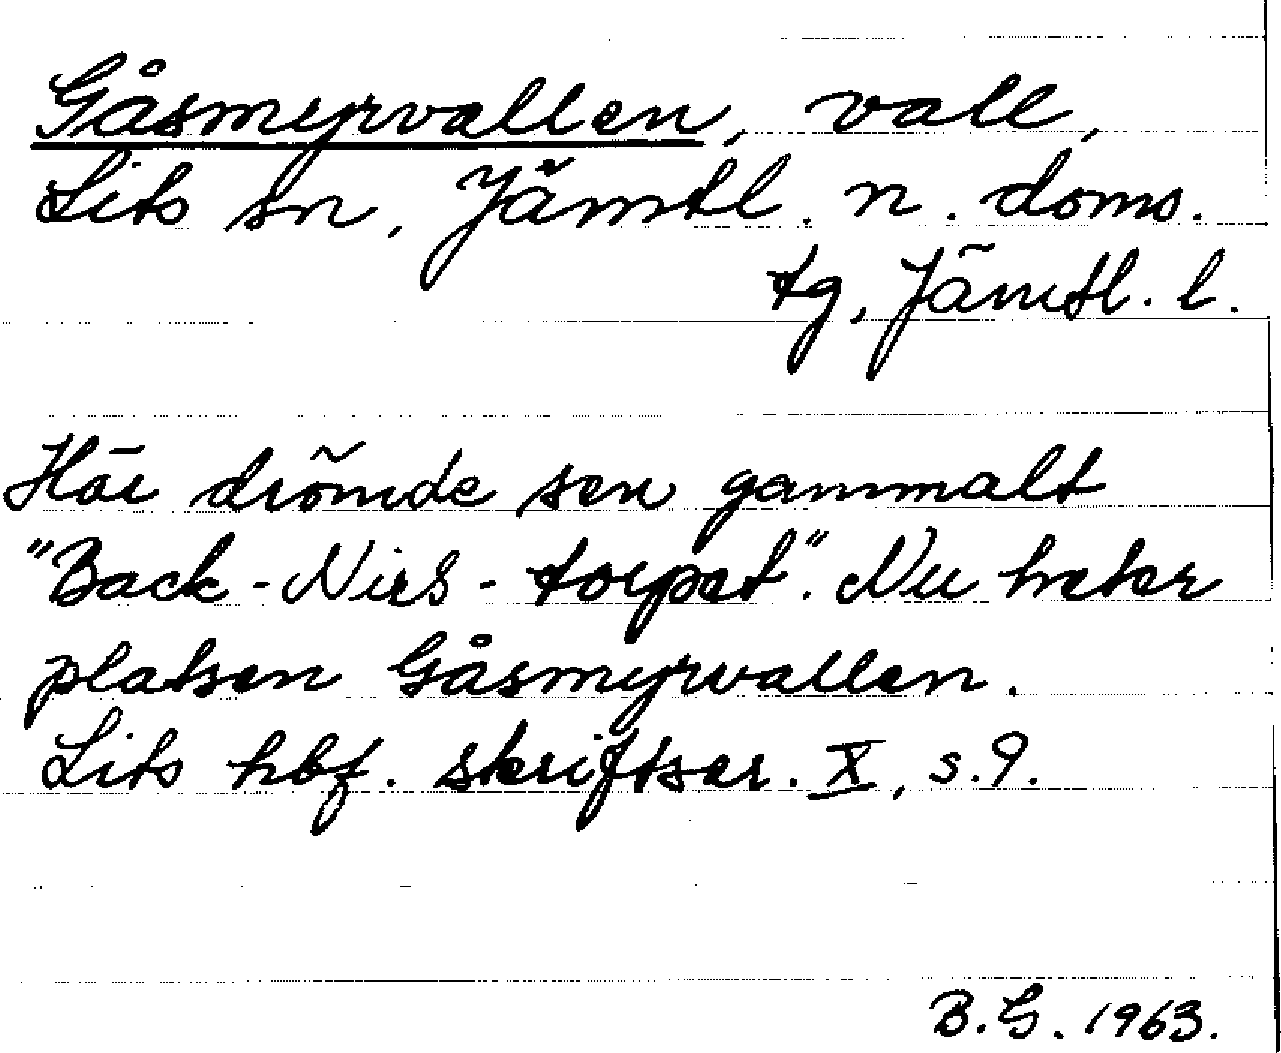 Gåsmyrvallen, vall,
Lits sn, Jämtl. n. doms.
tg, Jämtl. l.
Här drömde sen gammalt
"Back-Niels-torpet". Nu heter
platsen Gåsmyrvallen.
Lits hbf. skriftser. X, s. 9.
B.G. 1963.